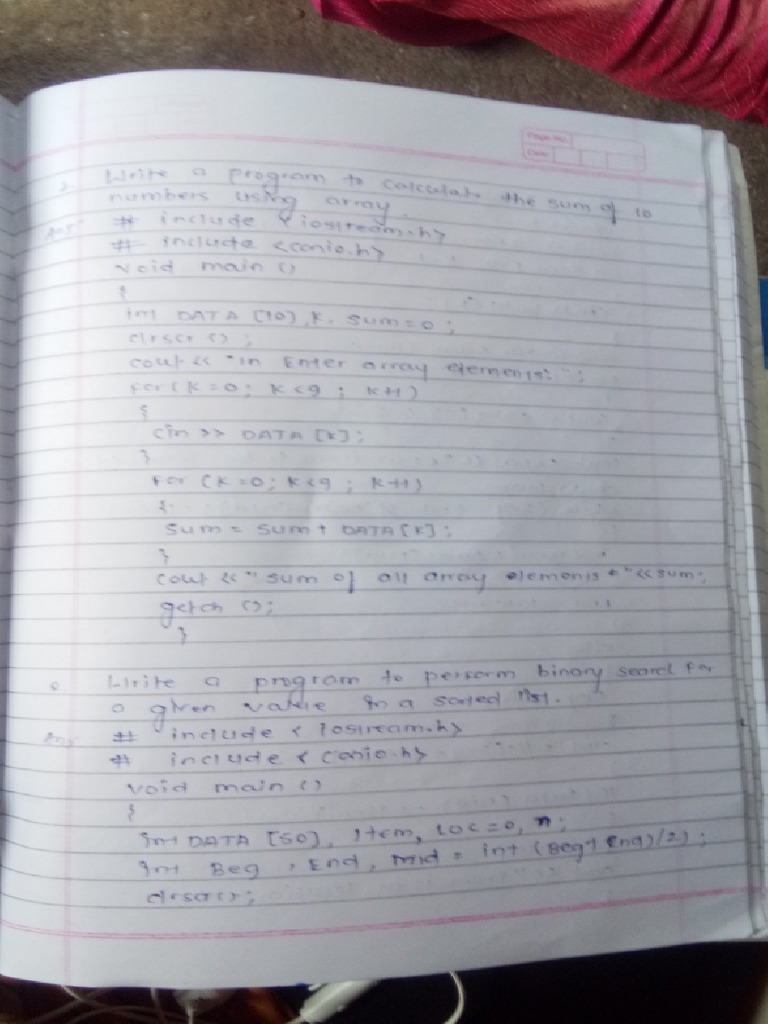 Page No.
Date
2. Write a program to calculate the sum of 10
numbers using array.
Ans
# include <iostream.h>
# include <conio.h>
void main ()
{
int DATA [10], K, sum=0;
clrscr ();
cout << "\n Enter array elements:";
for (K=0; K<9; K++)
{
cin >> DATA [K];
}
for (K=0; K<9; K++)
{
sum = sum + DATA [K];
}
cout << "sum of all array elements "<<sum;
getch ();
}
Write a program to perform binary search for
a given value in a sorted list.
Ans
# include < iostream.h>
# include < conio.h>
void main ()
{
int DATA [50], Item, LOC=0, n;
int Beg, End, mid = int (Beg+End)/2);
clrscr();